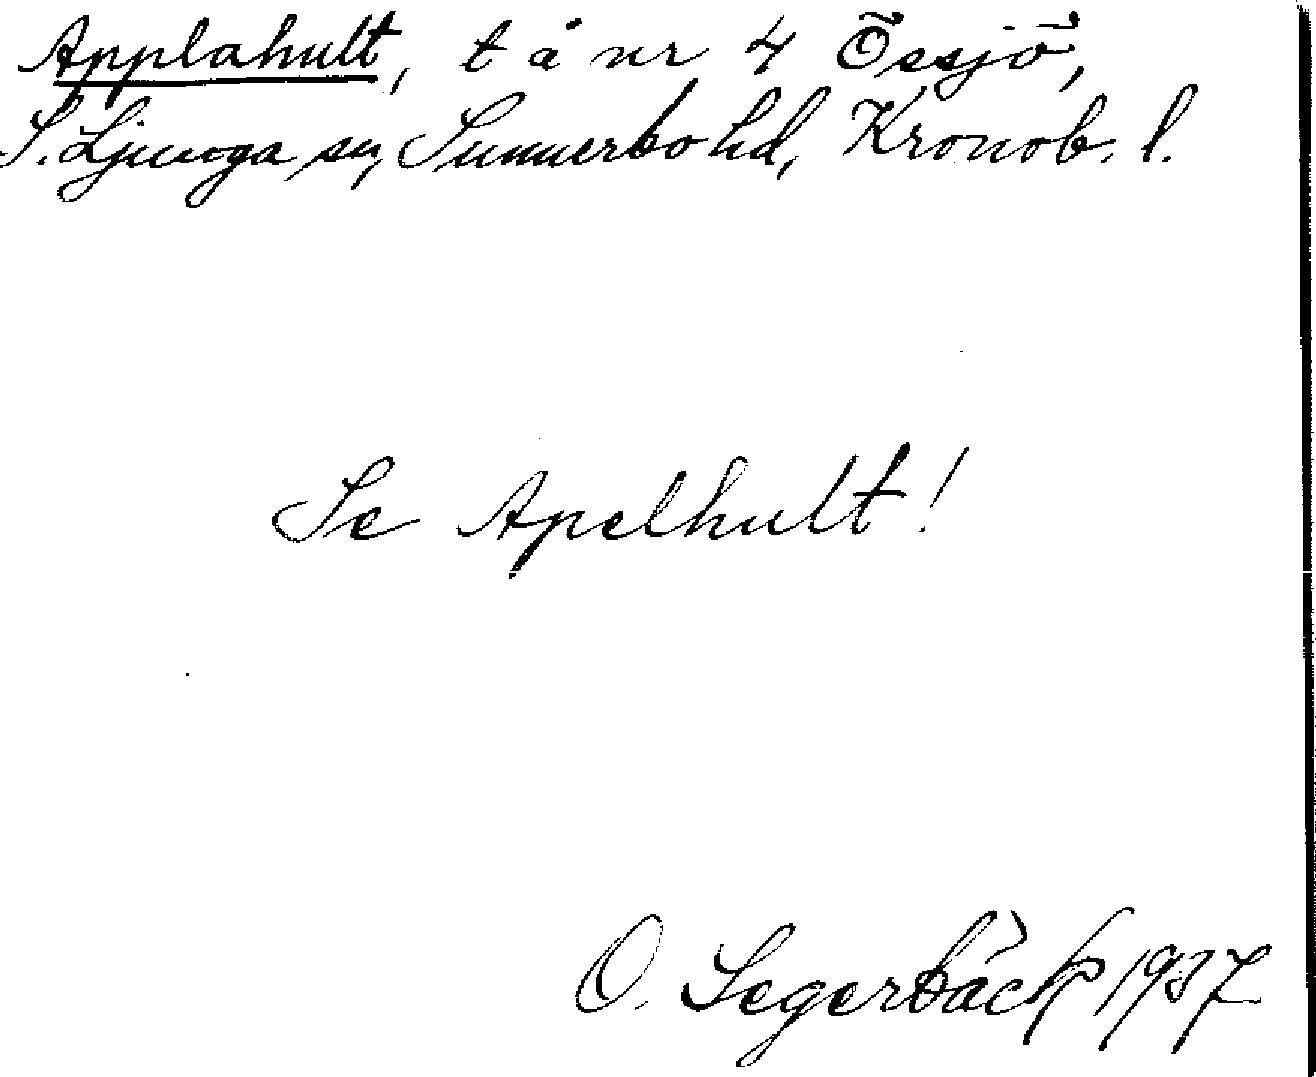 Applahult, t å nr 4 Össjö,
S. Ljunga sn, Sunnerbo hd, Kronob. l.
Se Apelhult!
O. Segerbäck 1937